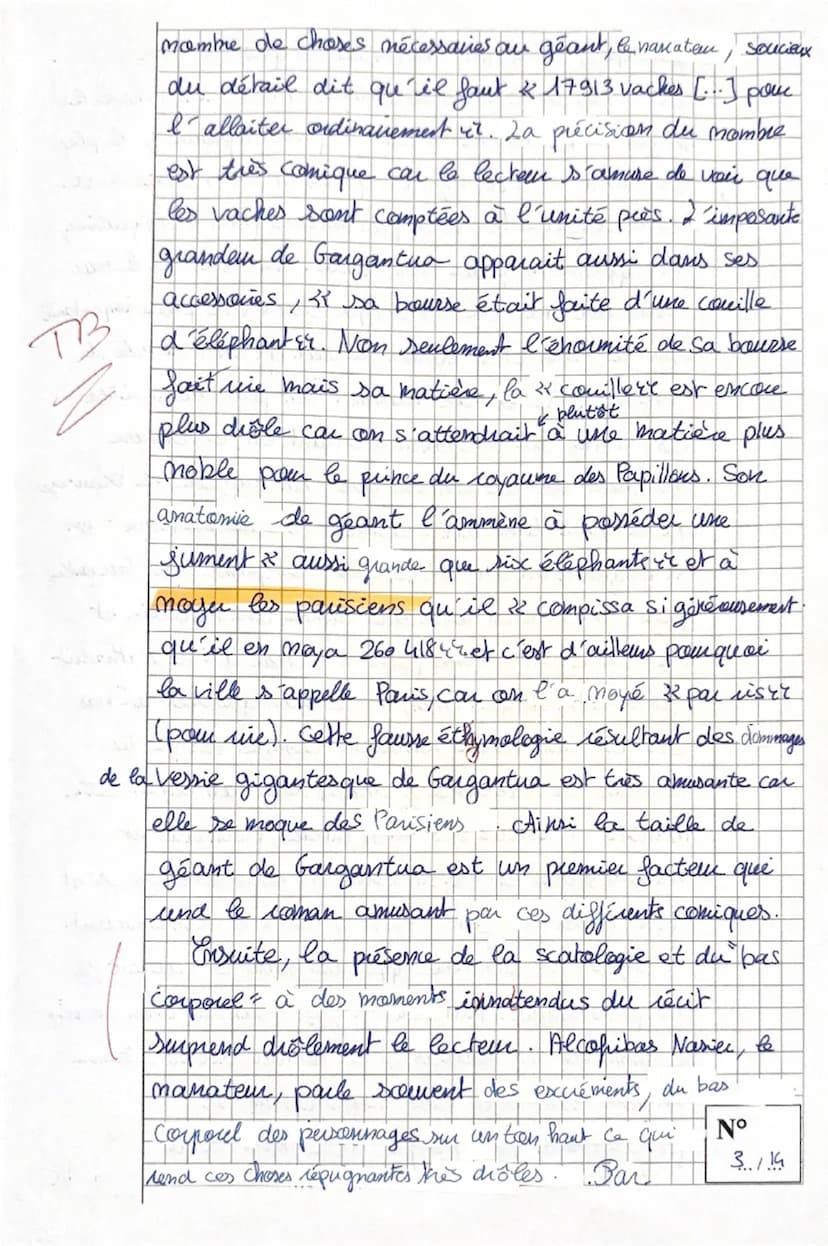 nombre de choses nécessaires au géant, le narrateur, soucieux
du détail dit qu'il faut « 17913 vaches [...] pour
l'allaiter ordinairement ». La précision du nombre
est très comique car le lecteur s'amuse de voir que
les vaches sont comptées à l'unité près. L'imposante
grandeur de Gargantua apparait aussi dans ses
accessoires, « sa bourse était faite d'une couille
TB
d'éléphant ». Non seulement l'énormité de sa bourse
fait rire mais sa matière, la « couille » est encore
plutôt
plus drôle car on s'attendrait à une matière plus
noble pour le prince du royaume des Papillons. Son
anatomie de géant l'ammène à posséder une
jument « aussi grande que six éléphants » et à
noyer les parisiens qu'il « compissa si généreusement
qu'il en noya 260 418 » et c'est d'ailleurs pourquoi
la ville s'appelle Paris, car on l'a noyé « par ris »
(pour rire). Cette fausse éthymologie résultant des dommages
de la vessie gigantesque de Gargantua est très amusante car
elle se moque des Parisiens. Ainsi la taille de
géant de Gargantua est un premier facteur qui
rend le roman amusant par ces différents comiques.
Ensuite, la présence de la scatologie et du "bas
corporel" à des moments innatendus du récit
surprend drôlement le lecteur. Alcofibas Nasier, le
narrateur, parle souvent des excréments, du bas
corporel des personnages sur un ton haut ce qui
rend ces choses répugnantes très drôles. Par
N°
3 / 14